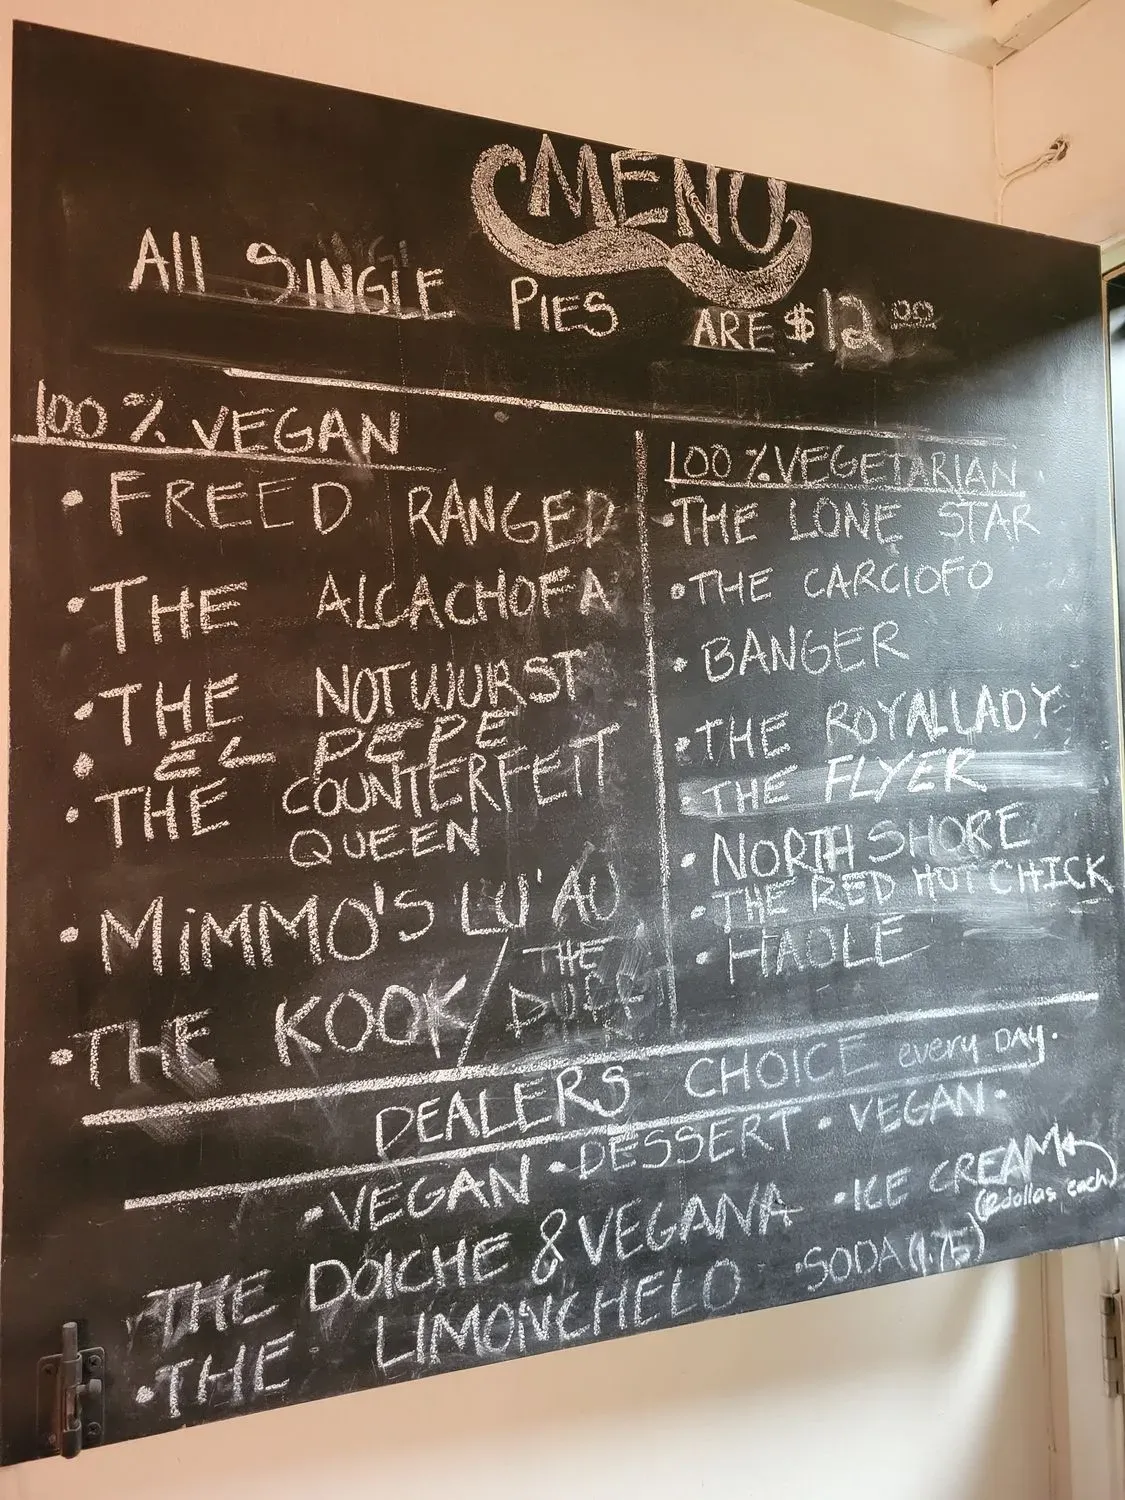 MENU
All SINGLE PIES ARE $12.00
100% VEGAN
• FREED RANGED
• THE ALCACHOFA
• THE NOTWURST
• EL PEPE
• THE COUNTERFEIT
QUEEN
• MiMMO'S LU'AU
• THE KOOK/THE
DUFF
100% VEGETARIAN
• THE LONE STAR
• THE CARCIOFO
• BANGER
• THE ROYALLADY
• THE FLYER
• NORTH SHORE
• THE RED HOT CHICK
• HAOLE
DEALERS CHOICE every DAY.
• VEGAN • DESSERT • VEGAN •
THE DOICHE & VEGANA • ICE CREAM
(2dollas each)
• THE LIMONCHELO • SODA (1.75)